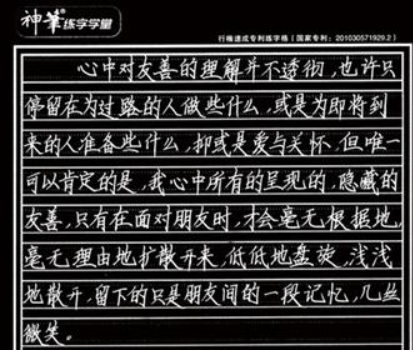 神筆®练字学堂
行楷速成专利练字格(国家专利:201030571929.2)
心中对友善的理解并不透彻,也许只
停留在为过路的人做些什么,或是为即将到
来的人准备些什么,抑或是爱与关怀,但唯一
可以肯定的是,我心中所有的呈现的,隐藏的
友善,只有在面对朋友时,才会毫无根据地,
毫无理由地扩散开来,低低地盘旋,浅浅
地散开,留下的只是朋友间的一段记忆,几丝
微笑。